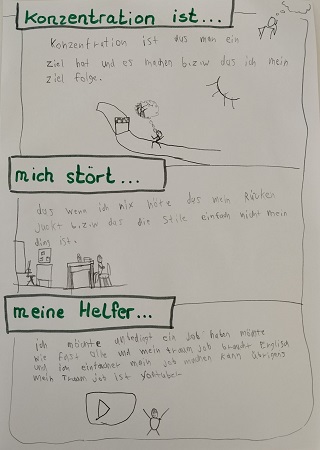 Konzentration ist...
Konzentration ist das man ein
ziel hat und es machen bizw das ich mein
ziel folge.
mich stört...
das wenn ich nix höte des mein Rücken
juckt bizw das die Stile einfach nicht mein
dim ist.
meine Helfer...
ich möchte unbedingt ein Job haben möchte
wie fast alle und mein traum job braucht Englisch
und ich einfacher mein job machen kann übrigens
mein Traum job ist youtuber